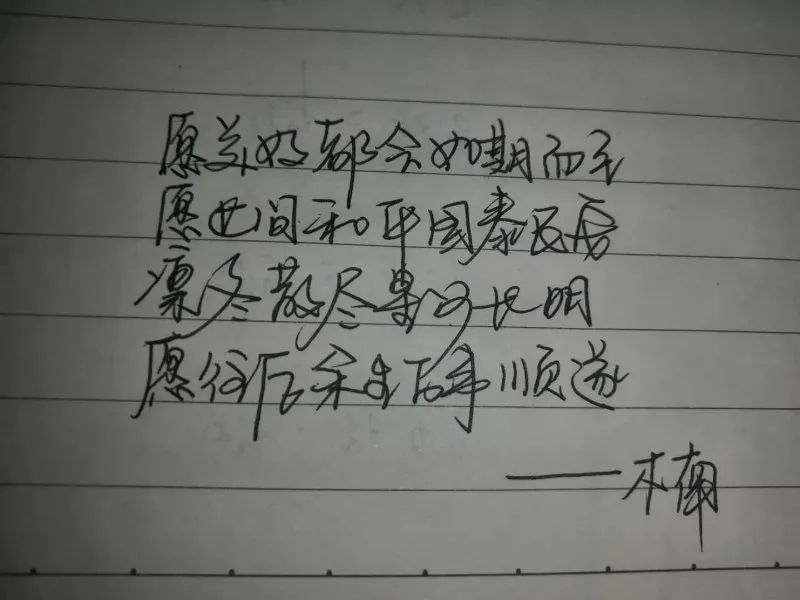 愿美好都会如期而至
愿世间和平国泰民安
凛冬散尽星河长明
愿往后余生百事顺遂
——木南